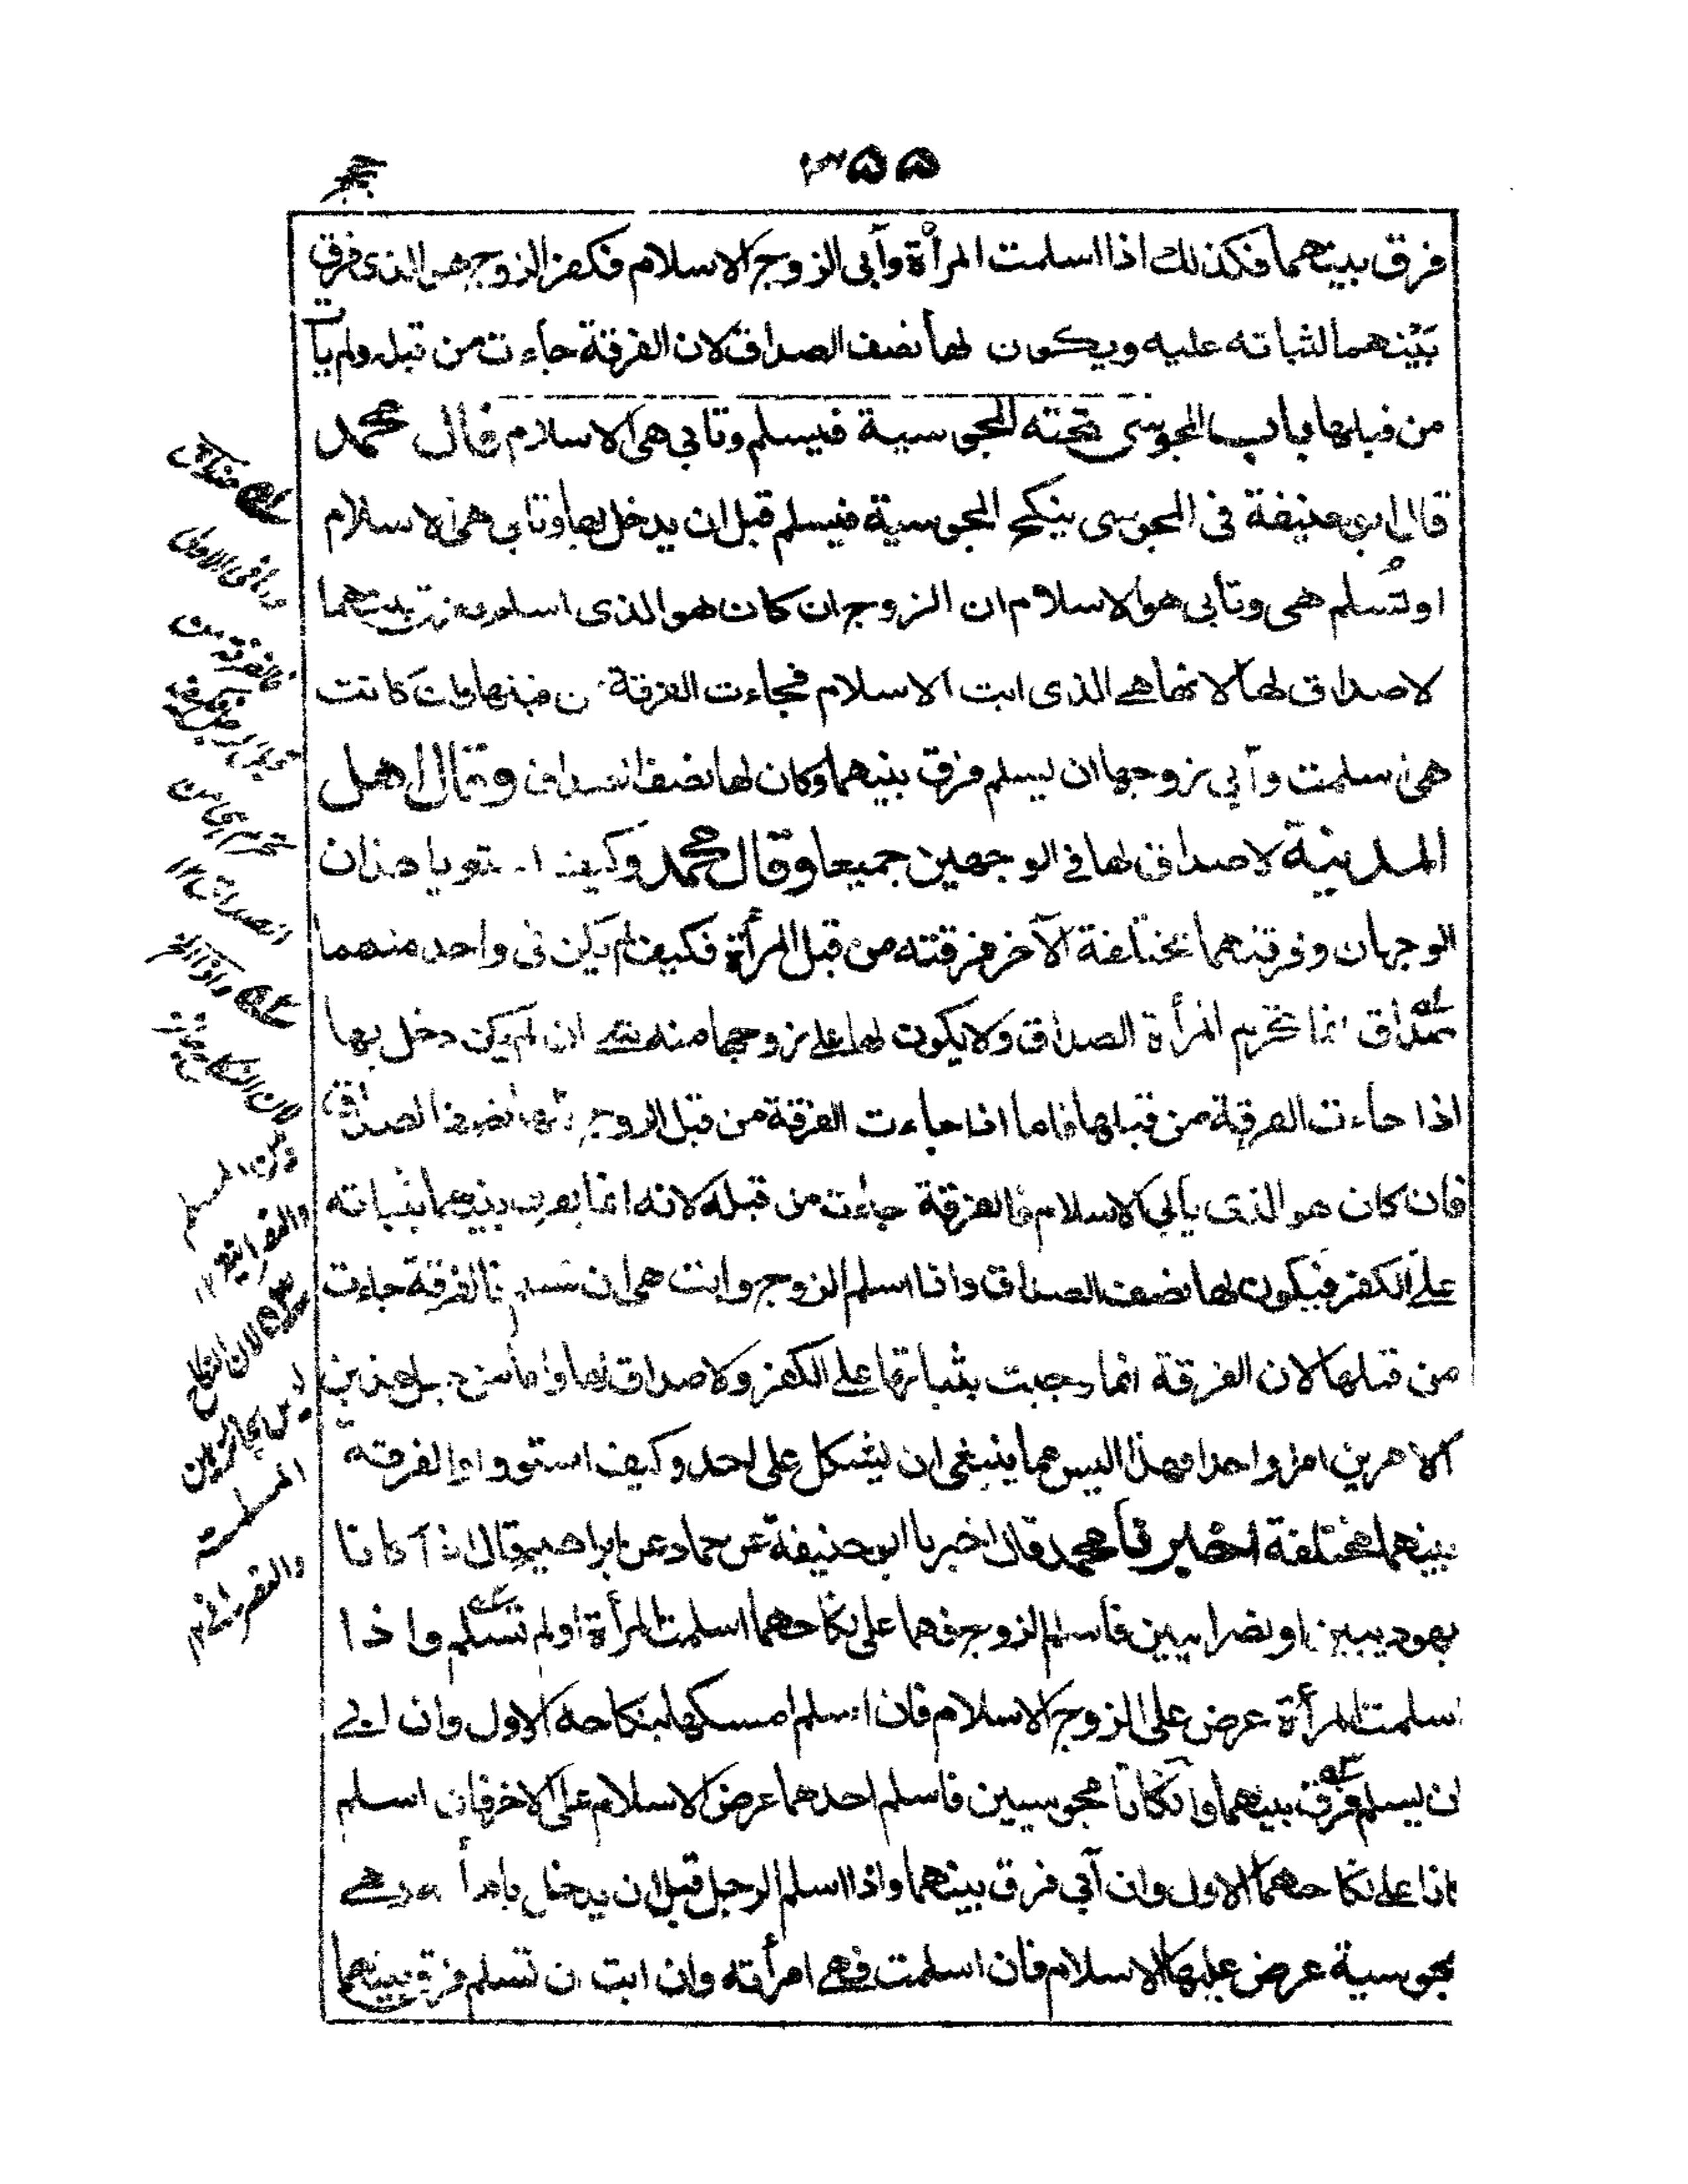 ٣٥٥
فرق بينهما فكذلك اذا اسلمت المرأة وأبى الزوج الاسلام فكفر الزوج هو الذى فرق
بَيْنهما لثباته عليه ويكون لها نصف الصداق لان الفرقة جاءت من قبله ولم يأت
من قبلها باب المجوسى تحته المجوسية فيسلم وتابى هى الاسلام قال محمد
قال ابو حنيفة فى المجوسى ينكح المجوسية فيسلم قبل ان يدخل بها وتابى هى الاسلام
او تُسلم هى وتأبى هو الاسلام ان الزوج ان كان هو الذى اسلم بينهما
لا صداق لها لانها هے الذى ابت الاسلام فجاءت الفرقة من قبلها وان كانت
هى اسلمت وأبى زوجها ان يسلم فرق بينهما وكان لها نصف الصداق وقال اهل
المدينة لا صداق لها فى الوجهين جميعا وقال محمد وكيف استويا هذان
الوجهان وفرقتهما مختلفة الآخر فرقته من قبل المرأة فكيف لم يكن فى واحد منهما
صداق انما تحرم المرأة الصداق ولا يكون لها على زوجها منه شے ان لم يكن دخل بها
اذا جاءت الفرقة من قبلها فاما اذا جاءت الفرقة من قبل الزوج فلها نصف الصداق
فان كان هو الذى يأبى الاسلام فالفرقة جاءت من قبله لانه انما بينهما بثباته
على الكفر فيكون لها نصف الصداق واذا اسلم الزوج وابت هى ان تسلم فالفرقة جاءت
من قبلها لان الفرقة انما وجبت بثباتها على الكفر ولا صداق لها واما من جعل هذين
الامرين امرا واحدا فهذا ليس مما ينبغى ان يشكل على احد وكيف استووا والفرقة
بينهما مختلفة اخبرنا محمد قال اخبرنا ابو حنيفة عن حماد عن ابراهيم قال اذا كانا
يهوديين او نصرانيين فاسلم الزوج فهما على نكاحهما اسلمت المرأة او لم تسلم واذا
اسلمت المرأة عرض على الزوج الاسلام فان اسلم امسكها بنكاحه الاول وان ابى
ان يسلم فرق بينهما وان كانا مجوسيين فاسلم احدهما عرض الاسلام على الاخر فان اسلم
كانا على نكاحهما الاول وان أبى فرق بينهما واذا اسلم الرجل قبل ان يدخل بامرأته وهے
مجوسية عرض عليها الاسلام فان اسلمت فهے امرأته وان ابت ان تسلم فرق بينهما